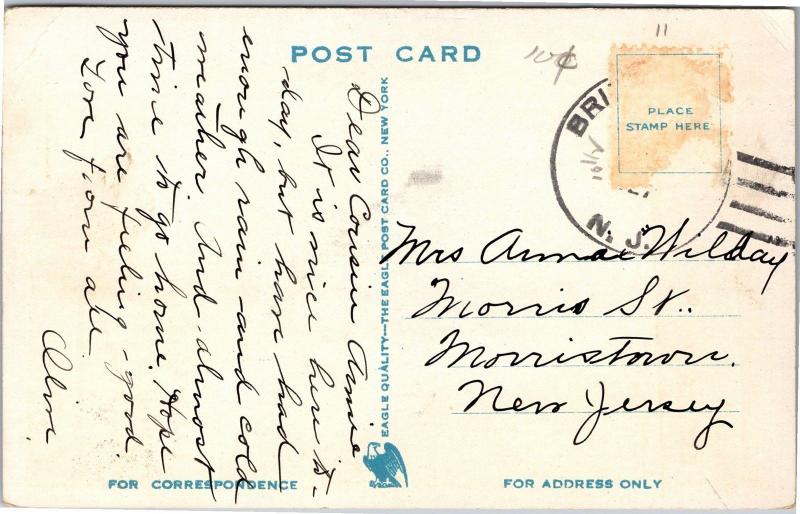 POST CARD
10¢
11
PLACE
STAMP HERE
BRI
N. J.
Dear Cousin Annie
It is nice here to-
day, but have had
enough rain and cold
weather. And almost
time to go home. Hope
you are feeling good.
Love from all
Mrs Annie Wilday
Morris St..
Morristown.
New Jersey
EAGLE QUALITY—THE EAGLE POST CARD CO., NEW YORK
FOR CORRESPONDENCE
FOR ADDRESS ONLY